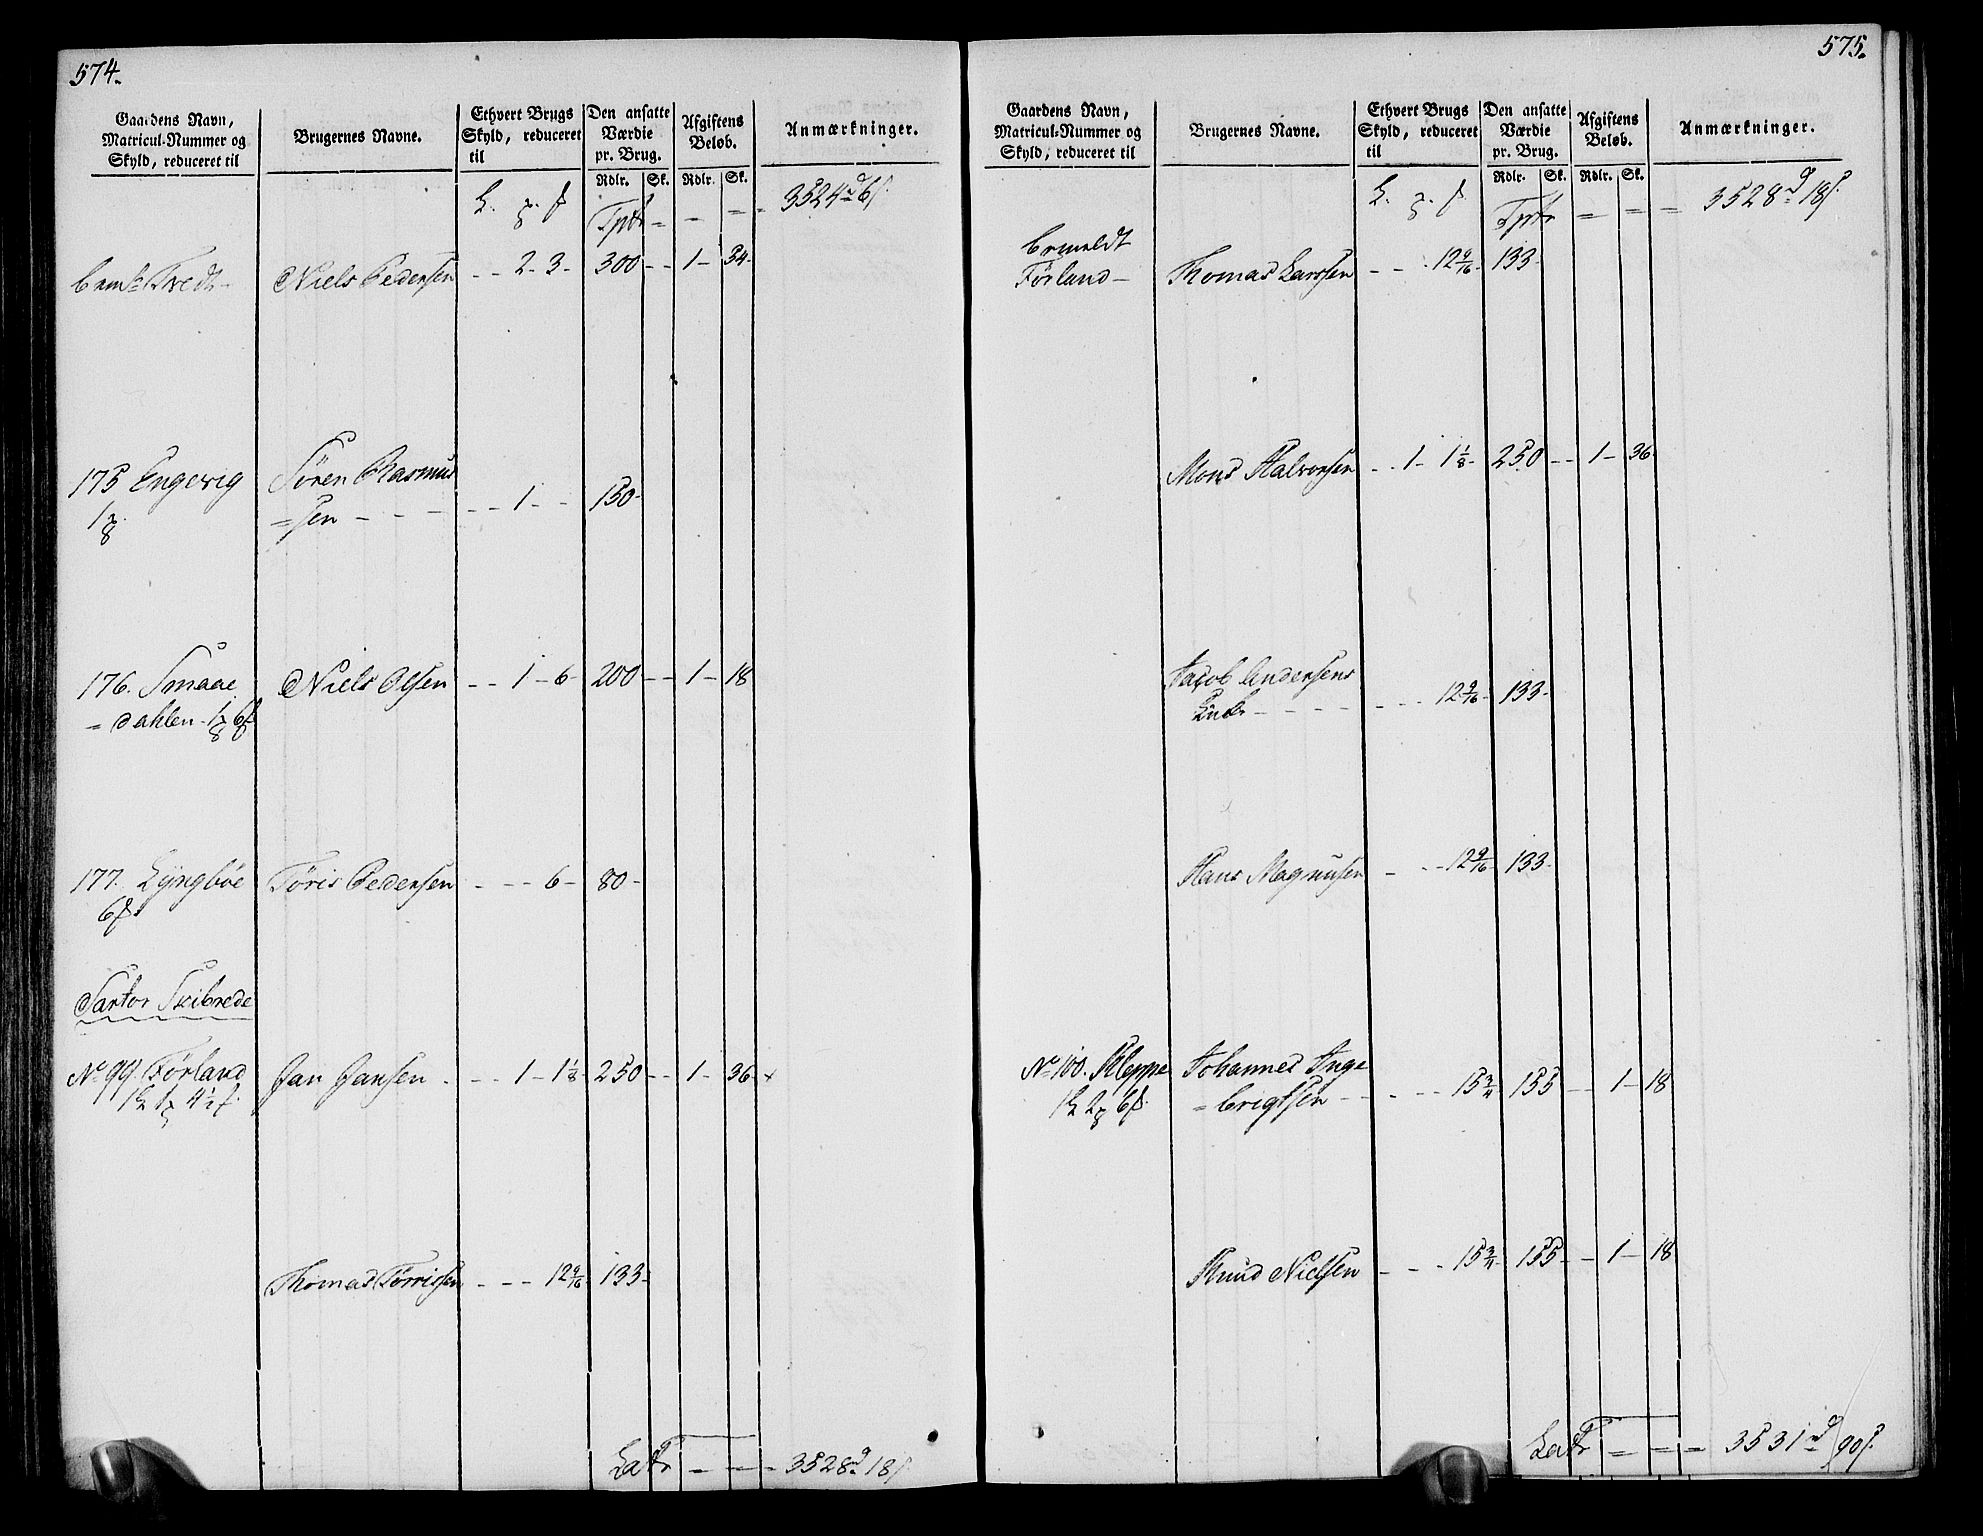 574.
Gaardens Navn, Matricul-Nummer og Skyld, reduceret til
Brugernes Navne.
Ethvert Brugs Skyld, reduceret til
Den ansatte Værdie pr. Brug.
Afgiftens Beløb.
Anmærkninger.
Rdlr. Sk. Rdlr. Sk.
Tptr = - = - 3524 d 6 s.
Bem.te Tvedt - Niels Pedersen - - 2 - 3 - 300 - - 1 - 54 -
175 Engevig Sören Rasmus
=sen - - - - - 1 - - 150 -
176. Smaae Niels Olsen - - 1 - 6 - 200 - - 1 - 18
=dahlen -
177. Lÿngböe Töris Pedersen - - - 6 - 80 -
Sartor Skibrede
No 99 Førland Jan Jansen - - - 1 - 1 1/8 - 250 - - 1 - 36 -
Thomas Törrissen - - - 12 9/16 - 133 -
Latr - - - 3528 d 18 s.
575.
Gaardens Navn, Matricul-Nummer og Skyld, reduceret til
Brugernes Navne.
Ethvert Brugs Skyld, reduceret til
Den ansatte Værdie pr. Brug.
Afgiftens Beløb.
Anmærkninger.
Rdlr. Sk. Rdlr. Sk.
Tptr = = = 3528 d 18 s.
Bemeldt
Førland - Thomas Larssen - - - 12 9/16 - 133 -
Mons Halvorsen - - 1 - 1 1/8 - 250 - - 1 - 36
Jacob Andersens
Enke - - - - - - - 12 9/16 - 133 -
Hans Magnusen - - - 12 9/16 - 133 -
No 100. Kleppe Johannes Inge
=brigtsen - - - - - 15 3/4 155 - - 1 - 18
Knud Nielsen - - - 15 3/4 155 - - 1 - 18
Latr = - - 3531 d 90 s.